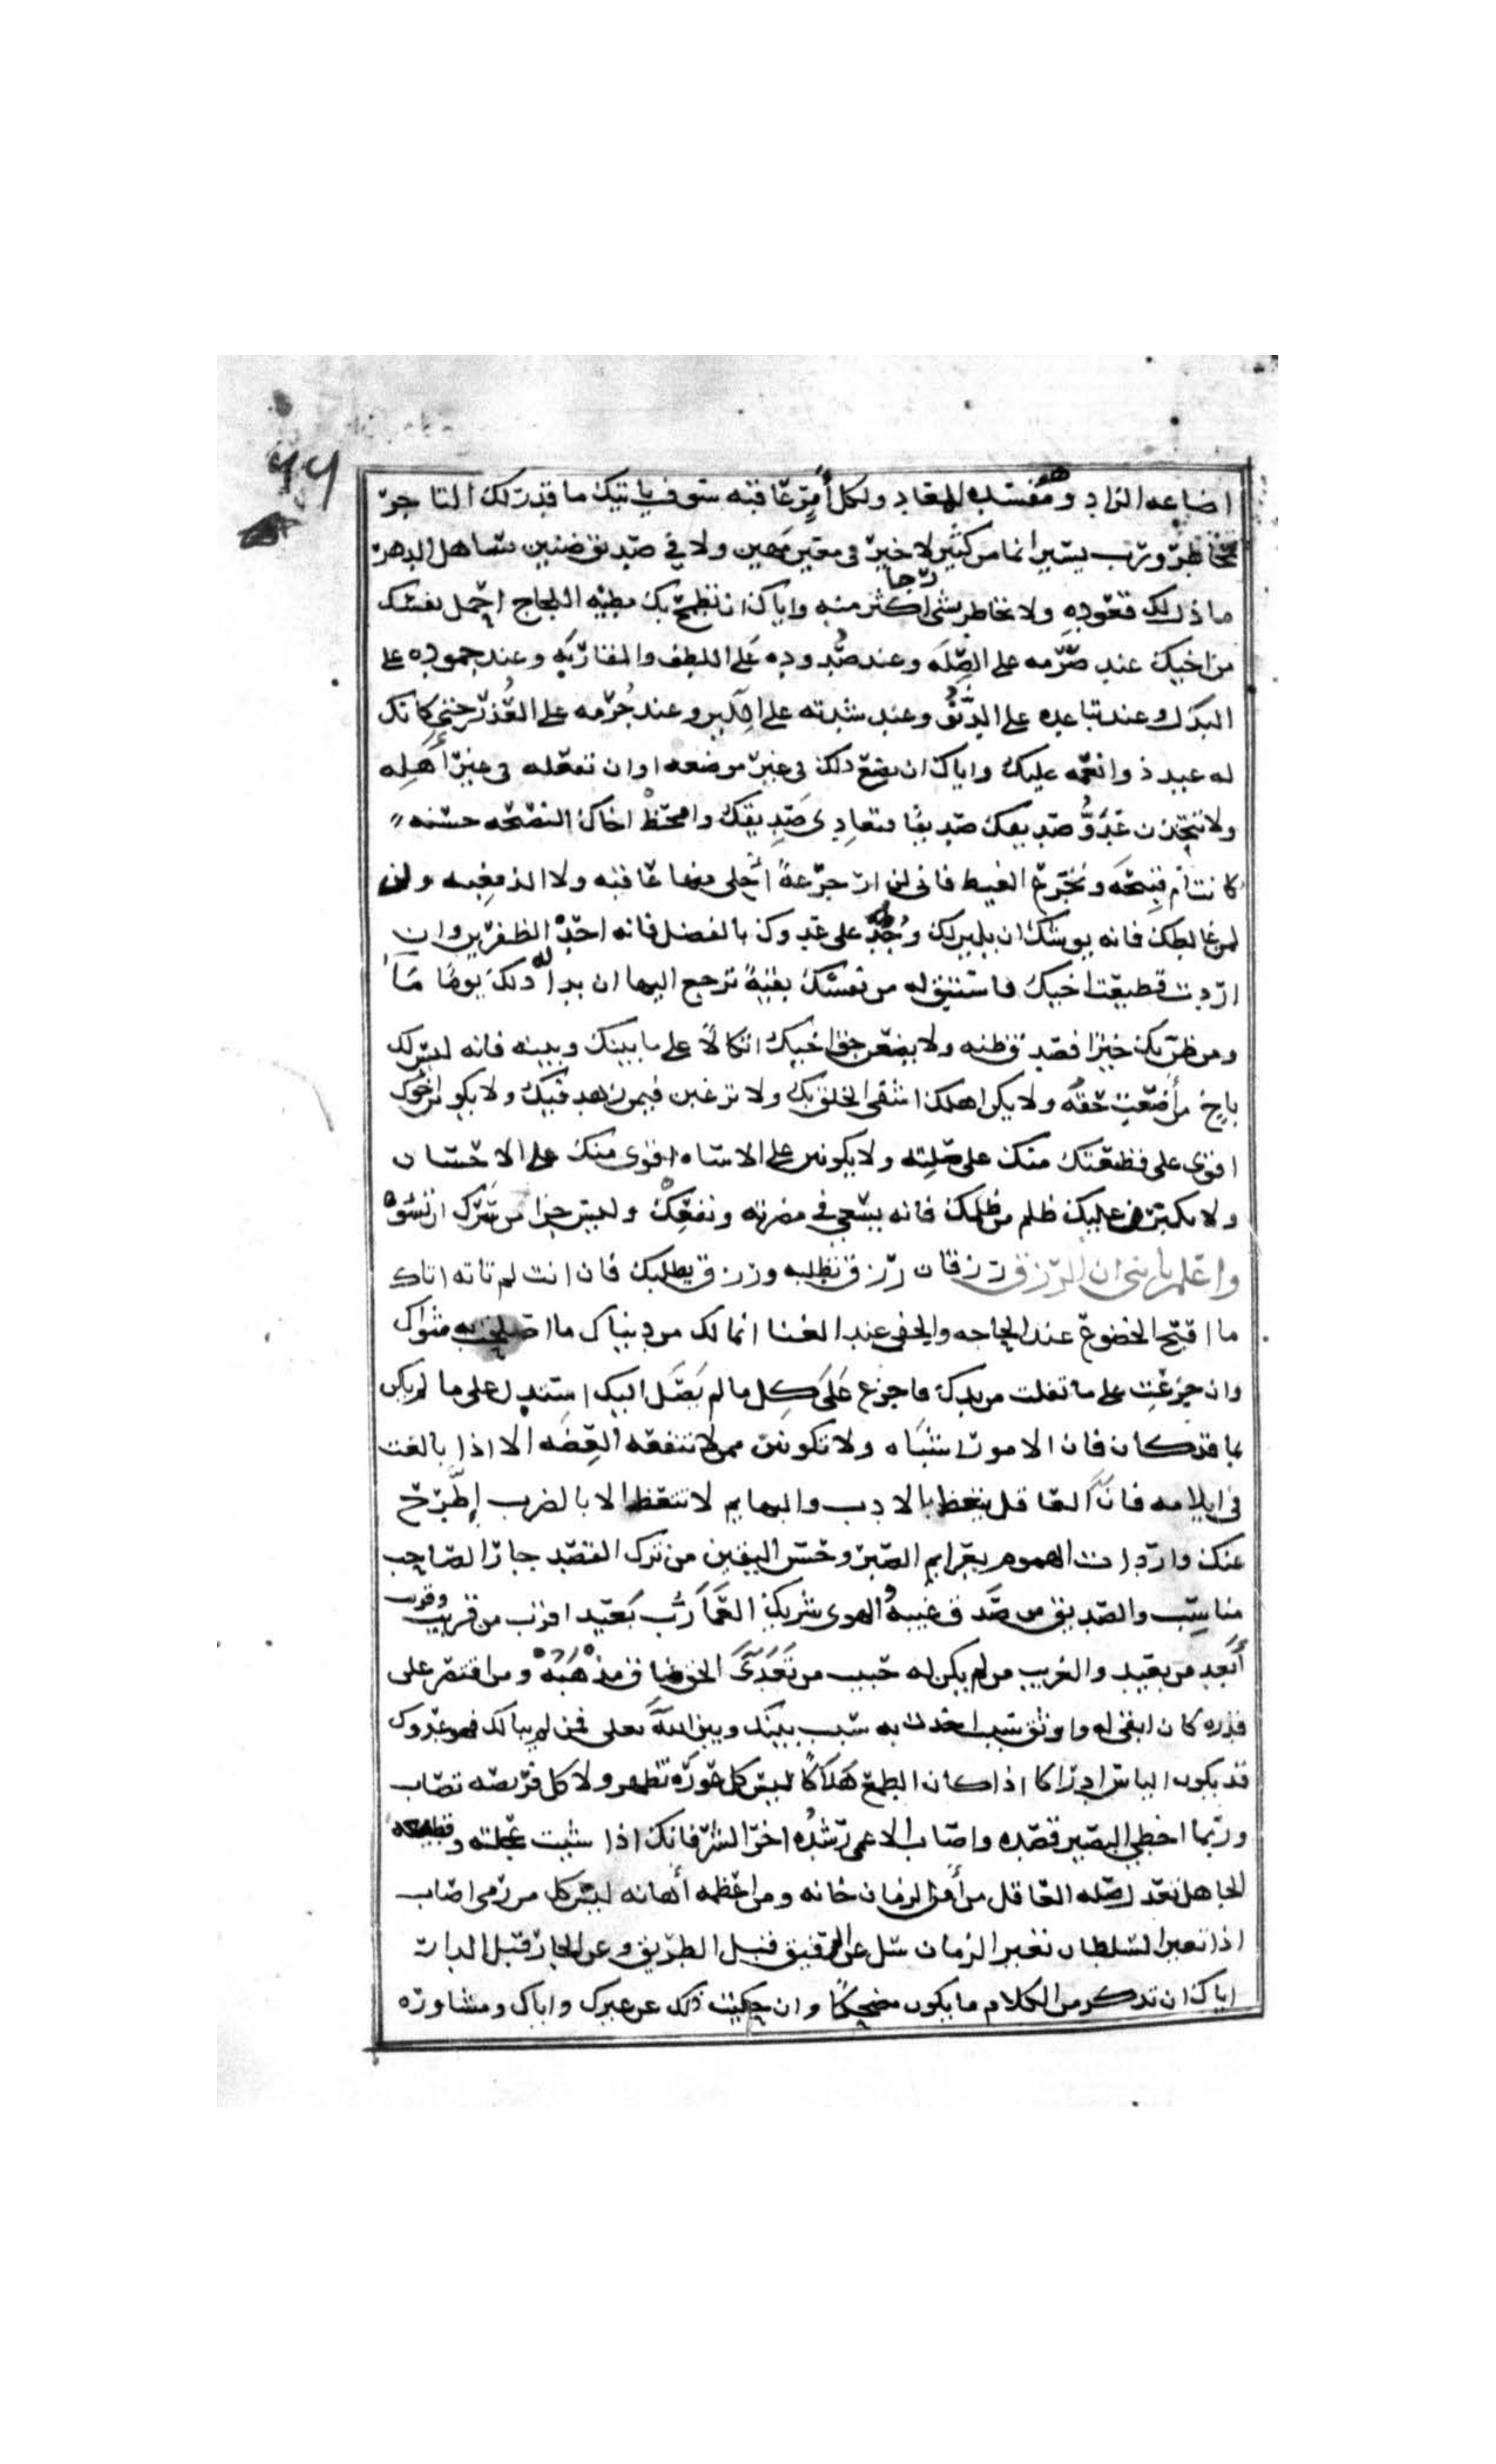 ٩٩
اضاعه الزاد ومفسده المعاد ولكل أمرٍ عاقبه سوف ياتيك ما قدر لك التاجر
مخاطر ورب يسير انما من كثير لا خير في معين مهين ولا في صديق ضنين ساهل الدهر
ما ذل لك قعوده ولا تخاطر بشي رجا اكثر منه واياك ان تطمح بك مطيه اللجاج احمل نفسك
من اخيك عند صرمه على الصِلَه وعند صُدوده عَلَى اللطف والمقاربَه وعند جموده على
البذل وعند تباعده على الدنُوُّ وعند شدته على اللين وعند جُرمه على العُذر حتى كانك
له عبد ذو انعمه عليك واياك ان تضع ذلك في غير موضعه او ان تفعله في غير أَهلِه
ولا تتخذن عَدُوَّ صديقك صديقا فتعادِي صَدِيقك وامحَضْ اخاك النصحه حسنه
كانت أم قبيحَه وتجَرع الغيظ فاني لم ار جرعةً أحلى منها عاقبه ولا الذ مغبه ولن
لمن غالظك فانه يوشك ان يلين لك وخُذ على عدوك بالفضل فانه احدْ الظفرين وان
اردت قطيعت اخيك فاستبق له من نفسك بقيةً ترجع اليها ان بدا له ذلك يومًا مَا
ومن ظن بك خيرا فصدق ظنه ولا يضعن حق اخيك اتكالًا على ما بينك وبينه فانه ليس لك
باخ من أضعت حقهُ ولا يكن اهلك اشقى الخلق بك ولا ترغبن فيمن زهد فيك ولا يكونن اخوك
اقوى على قطيعتك منك على صلته ولا يكونن على الاساه اقوى منك على الاحسان
ولا يكبرن عليك ظلم من ظلمك فانه يسعى في مضرته ونفعِكْ وليس جزا من سَرّك ان تسُوه
واعلم يا بني ان الرزق رزقان رزق تطلبه ورزق يطلبك فان انت لم تاته اتاك
ما اقبح الخضوع عند الحاجه والجفى عند الغنا انما لك من دنياك ما اصلحت به مثواك
وان جزعت على ما تفلت من يدك فاجزع عَلَى كل ما لم يَصَل اليك استدل على ما لم يكن
بما قد كان فان الامور اشبَاه ولا تكونَن ممن لا تنفعه العِظَه الا اذا بالغت
في ايلامه فانَّ العاقل يتعظ بالادب والبهايم لا تتعظ الا بالضرب إطَّرح
عنك واردات الهموم بعزايم الصبر وحسن اليقين من ترك القصد جار الصاحب
مناسِب والصديق من صَدق غيبهُ والهوى شريك العمَا رُب بَعيد اقرب من قريب وقريب
أبَعد من بعيد والغريب من لم يكن له حبيب من تَعَدَّىَ الحق ضاق مذْهَبُهْ ومن اقتصر على
قدره كان ابقى له واوثق سبب اخذت به سبب بينك وبين اللهَ تعلى فمن لم يبالك فهو عدوك
قد يكون الياس ادراكا اذا كان الطمع هَلَاكًا ليس كل عورَه تظهر ولا كل فرصه تصاب
وربما اخطى البصير قصده واصاب الاعمى رشدُه اخر الشر فانك اذا شيت عجلته وقطيعه
الجاهل تعدل صله العاقل من أمن الزمان خانه ومن اعظمه أهانه ليس كل من رمى اصاب
اذا تغير السلطان تغير الزمان سل عن الرفيق قبل الطريق وعن الجار قبل الدار
اياك ان تذكر من الكلام ما يكون مضحكًا وان حكيت ذلك عن غيرك واياك ومشاوره